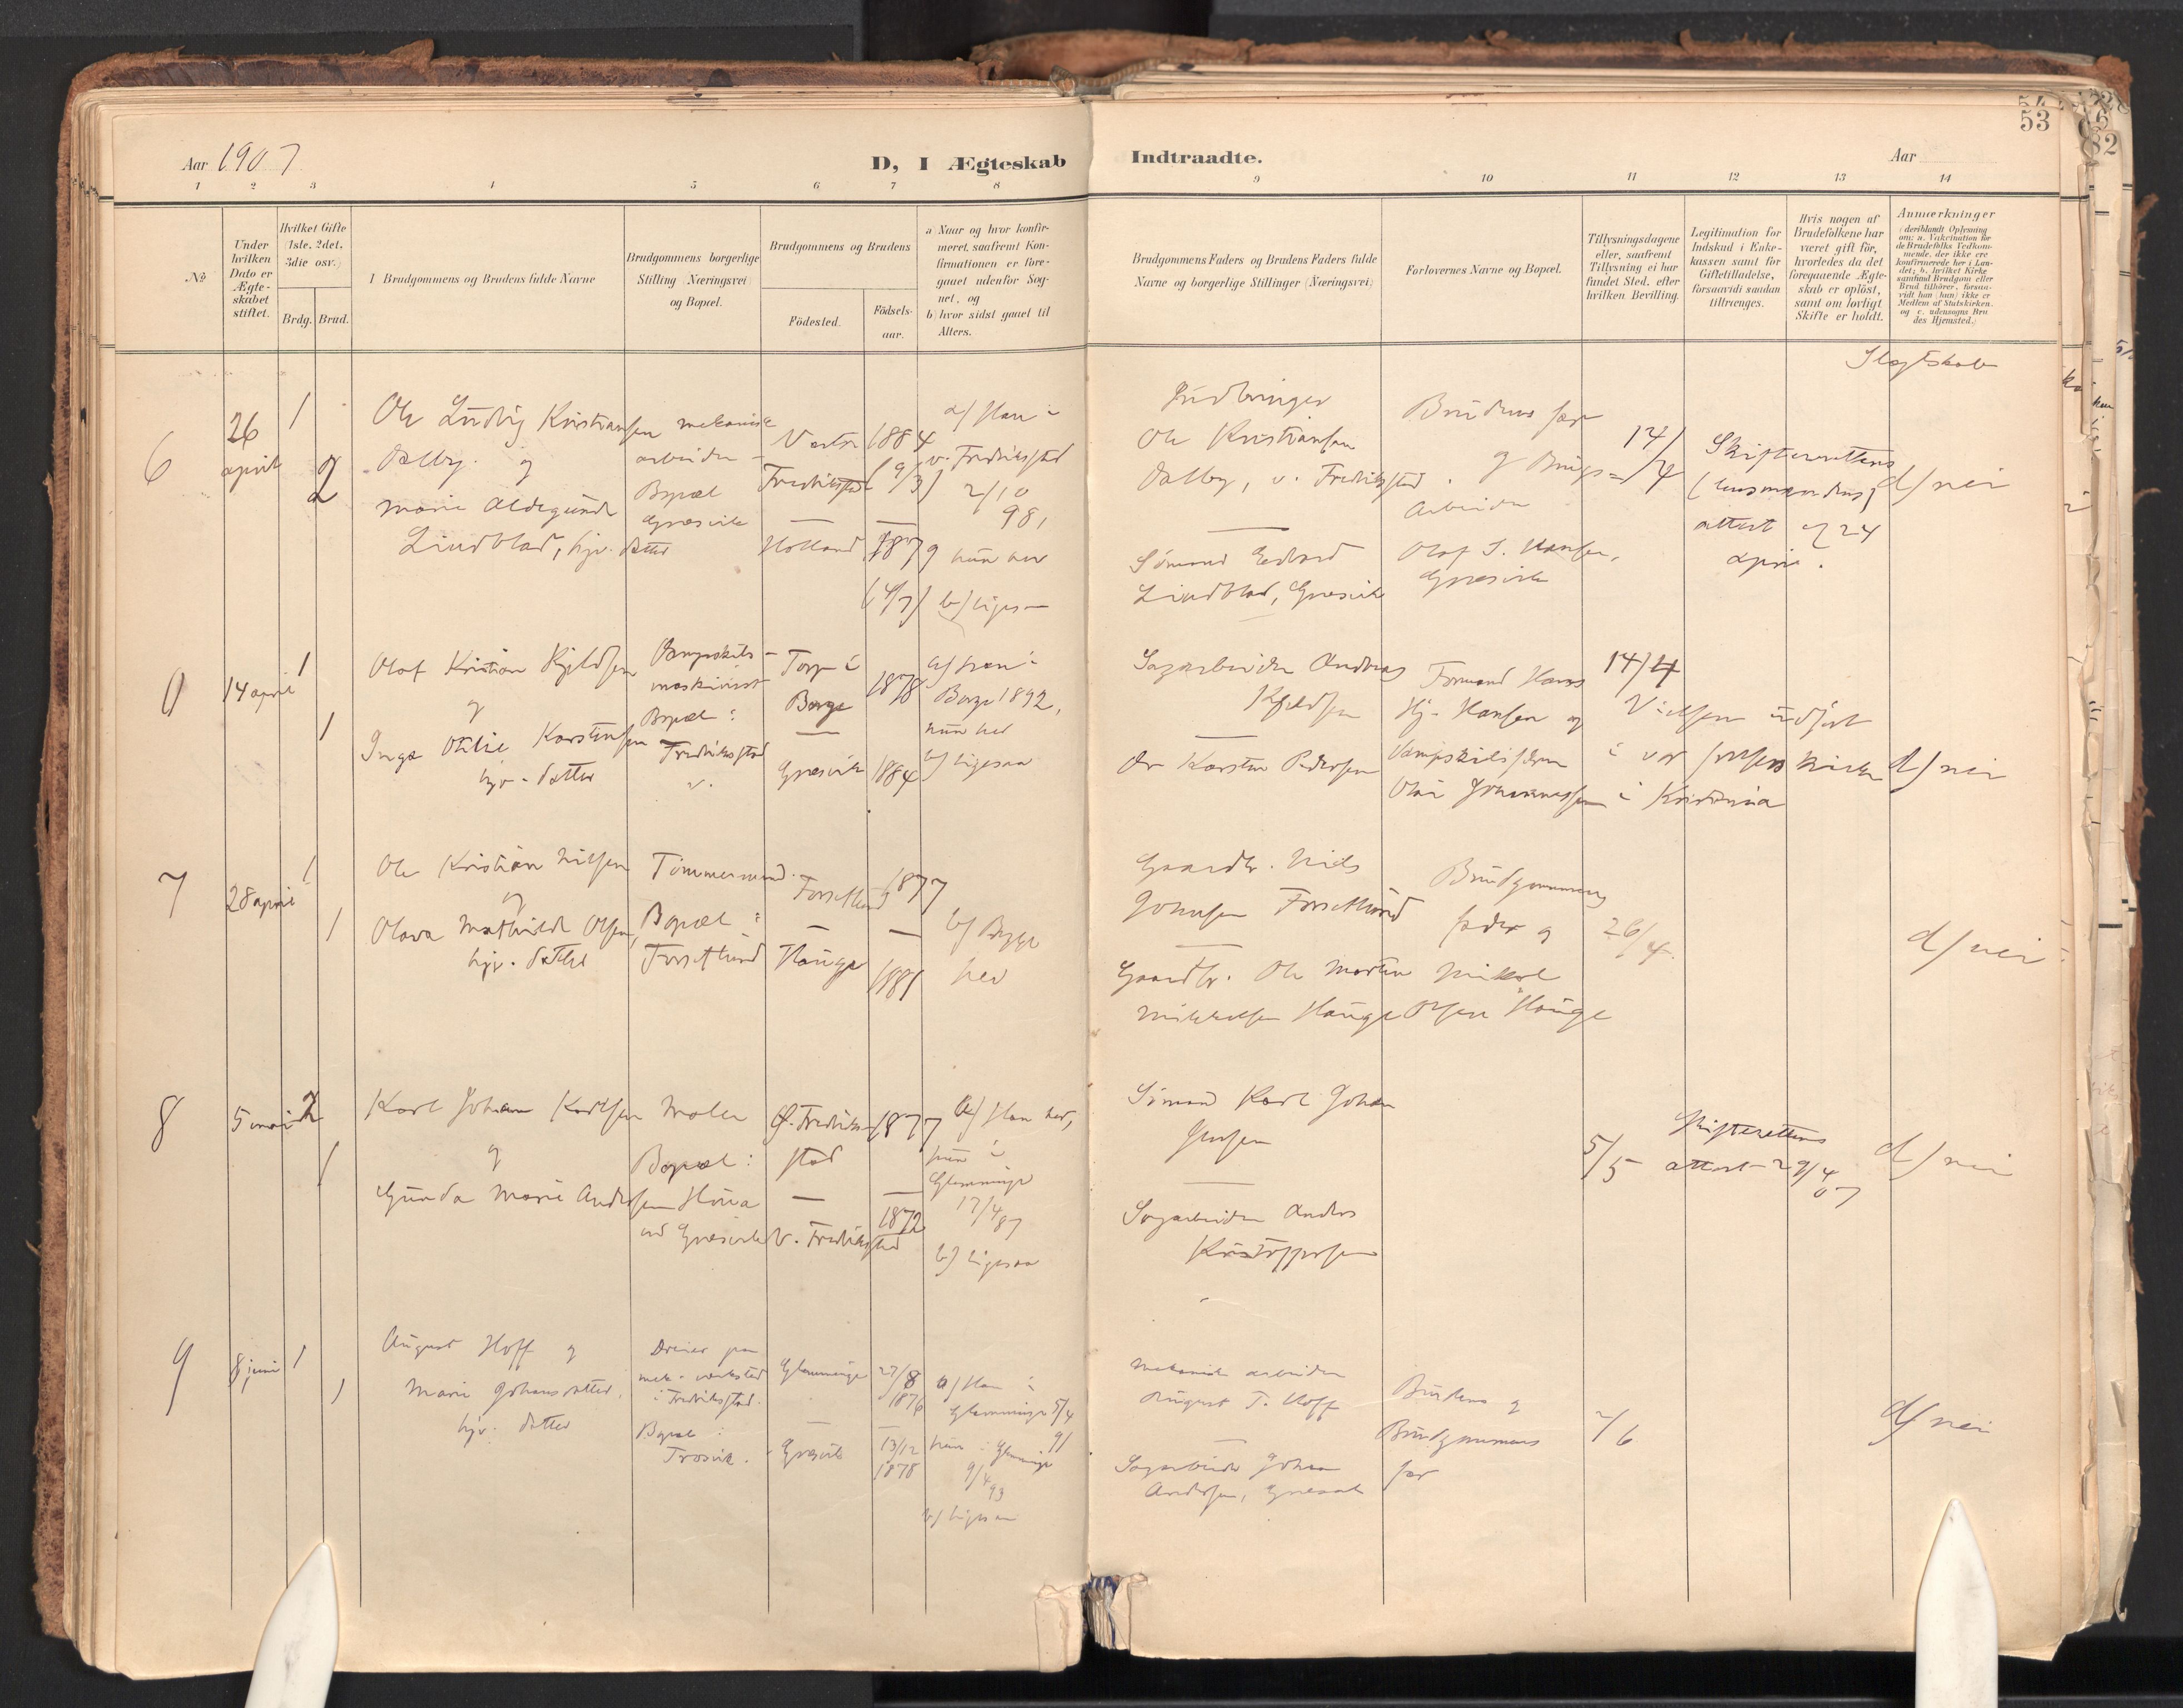 Aar 1907
D, I Ægteskab
Indtraadte.
Aar
53
1 2 3 4 5 6 7 8 9 10 11 12 13 14
No
Under hvilken Dato er Ægte-skabet stiftet.
Hvilket Gifte (1ste, 2det, 3die osv.)
Brdg. Brud.
Brudgommens og Brudens fulde Navne
Brudgommens borgerlige Stilling (Næringsvei) og Bopæl.
Brudgommens og Brudens
Födested.
Födsels-aar.
a) Naar og hvor konfir-
meret, saafremt Kon-
firmationen er fore-
gaaet udenfor Sog-
net, og
b) hvor sidst gaaet til
Alters.
Brudgommens Faders og Brudens Faders fulde
Navne og borgerlige Stillinger (Næringsvei)
Forlovernes Navne og Bopæl.
Tillysningsdagene
eller, saafremt
Tillysning ei har
fundet Sted, efter
hvilken Bevilling.
Legitimation for
Indskud i Enke-
kassen samt for
Giftetilladelse,
forsaavidt saadan
tiltrænges.
Hvis nogen af
Brudefolkene har
været gift för,
hvorledes da det
foregaaende Ægte-
skab er oplöst,
samt om lovligt
Skifte er holdt.
Anmærkninger
(deriblandt Oplysning
om: a. Vakcination for
de Brudefolks Vedkom-
mende, der ikke ere
konfirmerede her i Lan-
det; b. hvilket Kirke
samfund Brudgom eller
Brud tilhörer, forsaa-
vidt han (hun) ikke er
Medlem af Statskirken.
og c. udensogns Bru
des Hjemsted.)
Slegtskab
6
26 april
1
2
Ole Ludvig Kristiansen
Dalby. og
Marie Aldegunde
Lindblad, hjv. datter
mekanisk
arbeider
Bopæl
Græsvik
Fredrikstad
—
Holland
1884
(9/3)
—
1879
(4/7)
a) Han i
v. Fredrikstad
2/10
98,
hun her
b) ligesaa
Ole Kristiansen
Dalby, v. Fredrikstad
—
Sömand Edvard
Lindblad, Græsvik
Brudens far
og
Arbeider
Olaf S. Hansen,
Græsvik
14/4
Skifterettens
attest af 24
april.
d) nei
0
14 april
1
1
Olaf Kristian Kjeldsen
og
Inga Otilie Karstensen
hjv. datter
Dampskibs-
maskinist
Bopæl:
Fredriksstad
v.
Torp i
Borge
—
Græsvik
1878
1884
a) han i
Borge 1892,
hun her
b) ligesaa
Sagarbeider Andreas
Kjeldsen
—
Karsten Pedersen
Formand Hans
Hj. Hansen og
Johannessen
14/4
Vielsen udfört
i vor frelsers kirke
i Kristiania
d) nei
7
28 april
1
1
Ole Kristian Nilsen
og
Olava Mathilde Olsen,
hjv. datter
Tömmermand.
Bopæl:
Forsetlund
Forsetlund
—
Hauge
1877
—
1881
her
Gaardbr. Niels
Johnsen Forsetlund
—
Gaardbr. Ole Martin
Mikkelsen Hauge
Brudgommens
fader og
Mikael
Olsen Hauge
26/4.
d) nei
8
5 mai
2
1
Karl Johan Karlsen
og
Gunda Marie Andersen
Maler
Bopæl:
ved Græsvik
Ö. Fredrik-
stad
—
V. Fredrikstad
1877
—
1872
a) Han her,
hun i
Glemminge
17/4 87
b) ligesaa
Sömand Karl Johan
Jensen
—
Sagarbeider Anders
Kristoffersen
5/5
Skifterettens
attest 29/4 07
d) nei
9
8 juni
1
1
August Hoff og
Marie Johansdatter,
hjv. datter
Dreier paa
mek. verksted
i Fredriksstad.
Bopæl:
Trosvik.
Glemminge
—
Græsvik
27/8
1876
—
13/12
1878
a) Han i
Glemminge 5/4
91
hun i Glemminge
9/4 93
b) ligesaa
Mekanisk arbeider
August T. Hoff
—
Sagarbeider Johan
Andersen, Græsvik
Brudens og
Brudgommens
far
2/6
d) nei